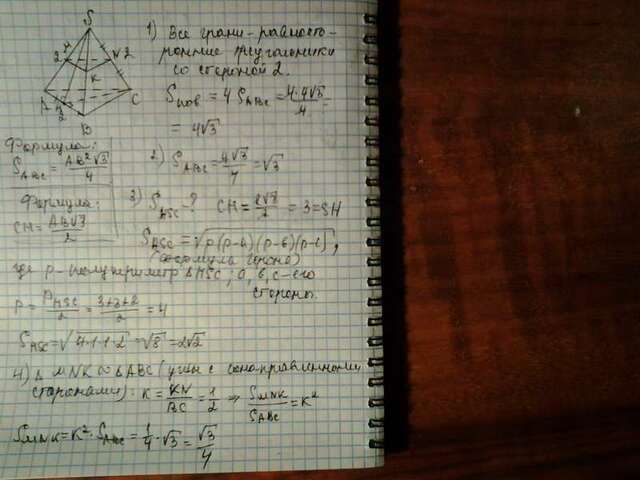 S
M
2
N 2
K
A
H
2
B
C
1) Все грани - равносто-
ронние треугольники
со стороной 2.
Sпов = 4 S ABC = 4·4√3/4 =
= 4√3
Формула:
S ABC = AB²√3/4
2) S ABC = 4√3/4 = √3
Формула:
CH = AB√3/2
3) S HSC - ? CH = = 3 = SH
S HSC = √p(p-a)(p-b)(p-c),
(формула Герона)
где p - полупериметр Δ HSC; a, b, c - его
стороны.
P = P HSC/2 = 3+3+2/2 = 4
S HSC = √4·1·1·2 = √8 = 2√2
4) Δ MNK ∞ Δ ABC (углы с сонаправленными
сторонами): K = KN/BC = 1/2 ⇒ S MNK/S ABC = K²
S MNK = K²·S ABC = 1/4·√3 = √3/4